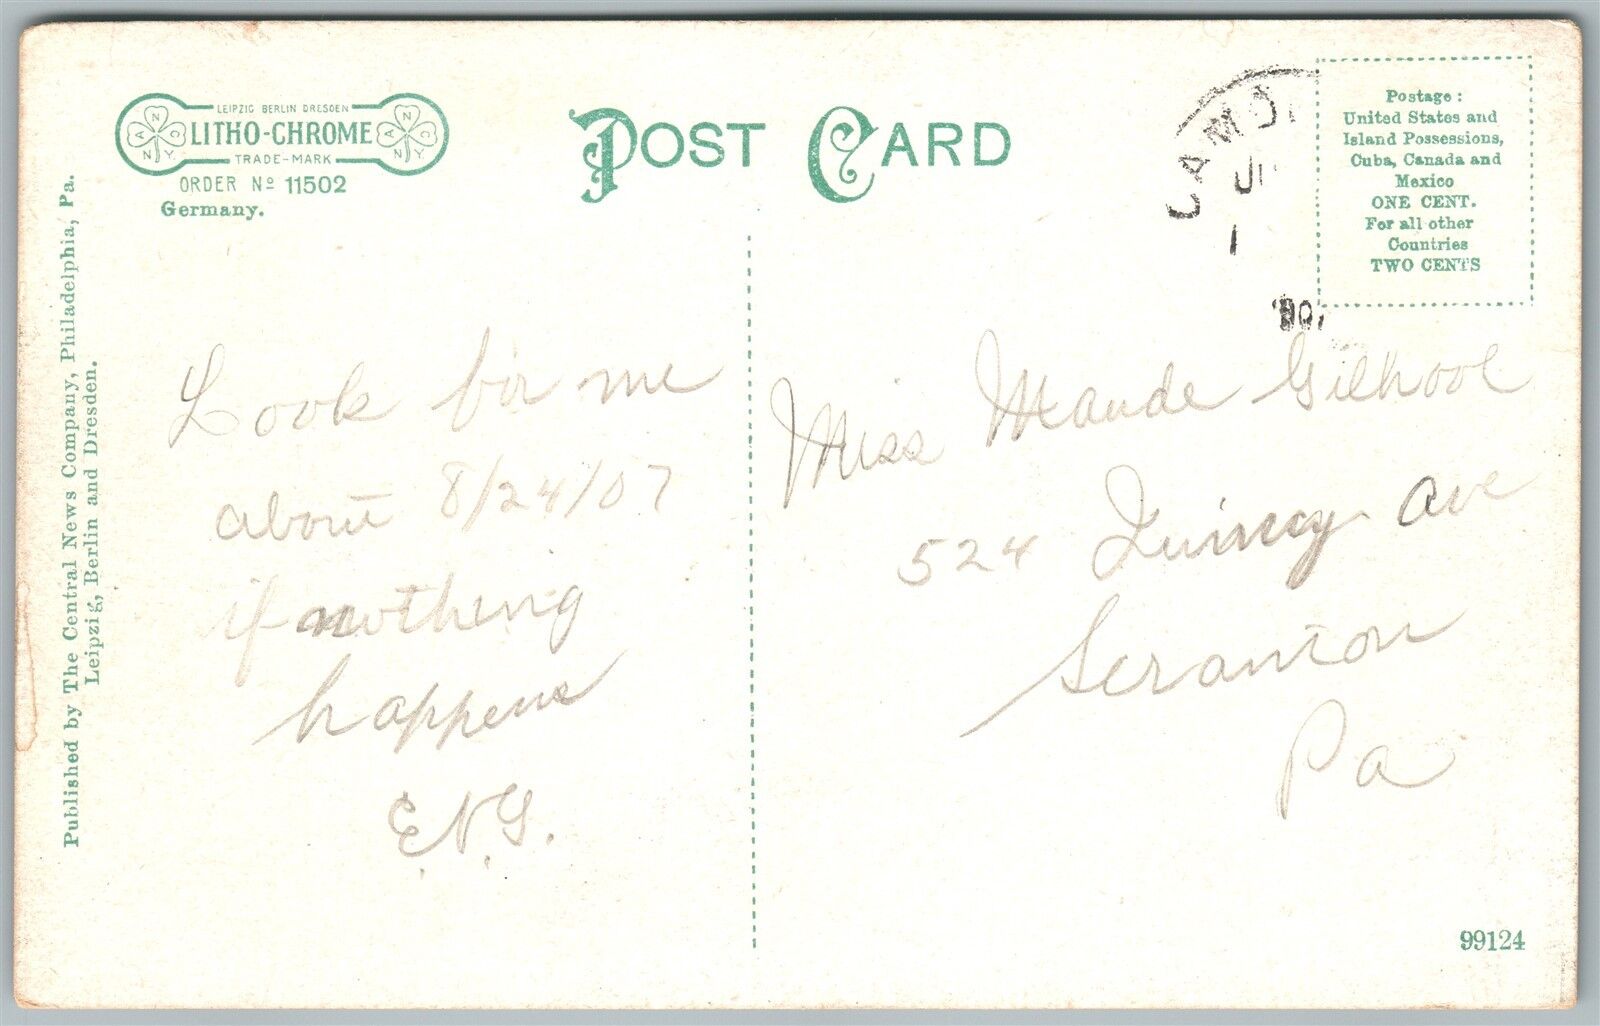 LEIPZIG BERLIN DRESDEN
LITHO-CHROME
TRADE-MARK
ORDER Nº 11502
Germany.
POST CARD
Postage:
United States and
Island Possessions,
Cuba, Canada and
Mexico
ONE CENT.
For all other
Countries
TWO CENTS
Published by The Central News Company, Philadelphia, Pa.
Leipzig, Berlin and Dresden.
Look for me
about 8/24/07
if nothing
happens
E.N.G.
Miss Maude Gilhool
524 Quincy Ave
Scranton
Pa
99124